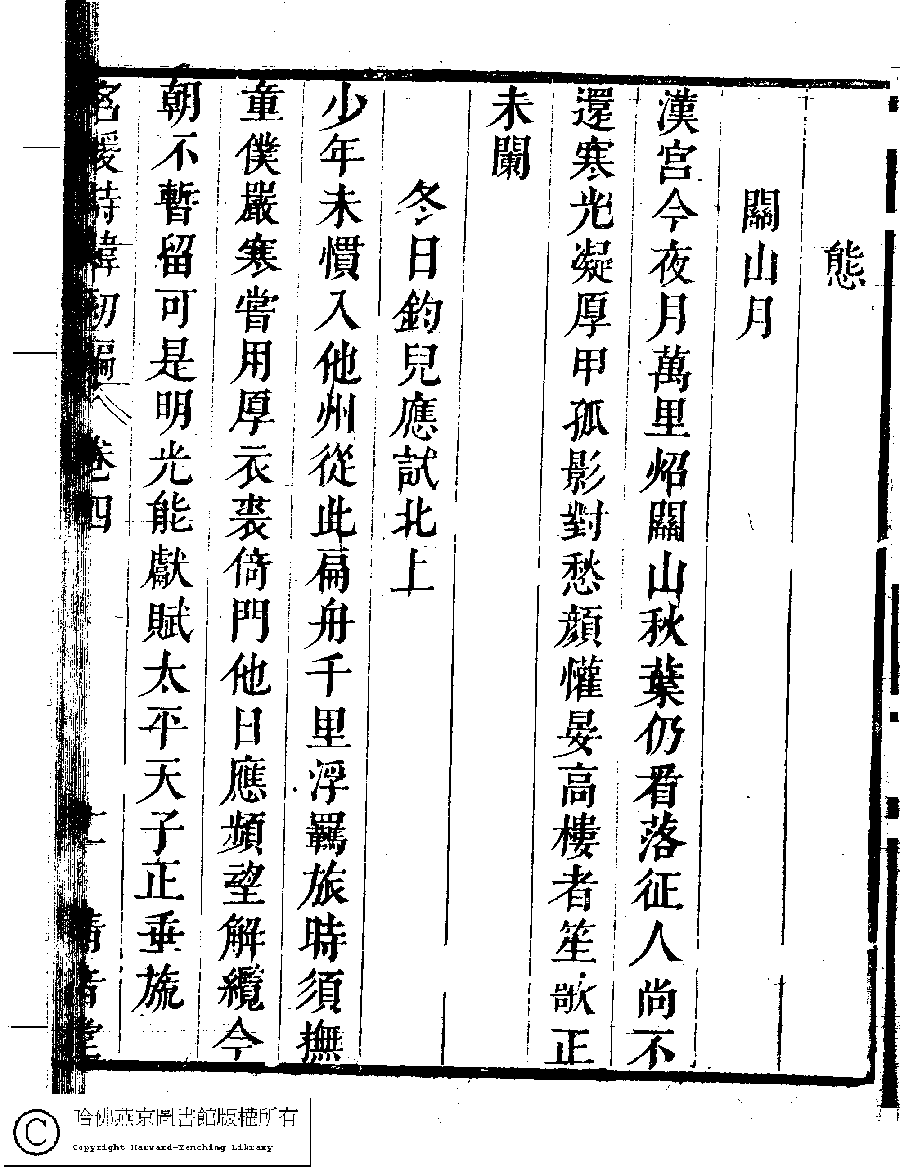 態
關山月
漢宮今夜月萬里炤關山秋葉仍看落征人尚不
還寒光凝厚甲孤影對愁顔懽宴高樓者笙歌正
未闌
冬日鈞兒應試北上
少年未慣入他州從此扁舟千里浮羈旅時須撫
童僕嚴寒嘗用厚衣裘倚門他日應頻望解纜今
朝不暫留可是明光能獻賦太平天子正垂旒
名媛詩緯初編 卷四 清音堂
哈佛燕京圖書館版權所有
Copyright Harvard-Yenching Library